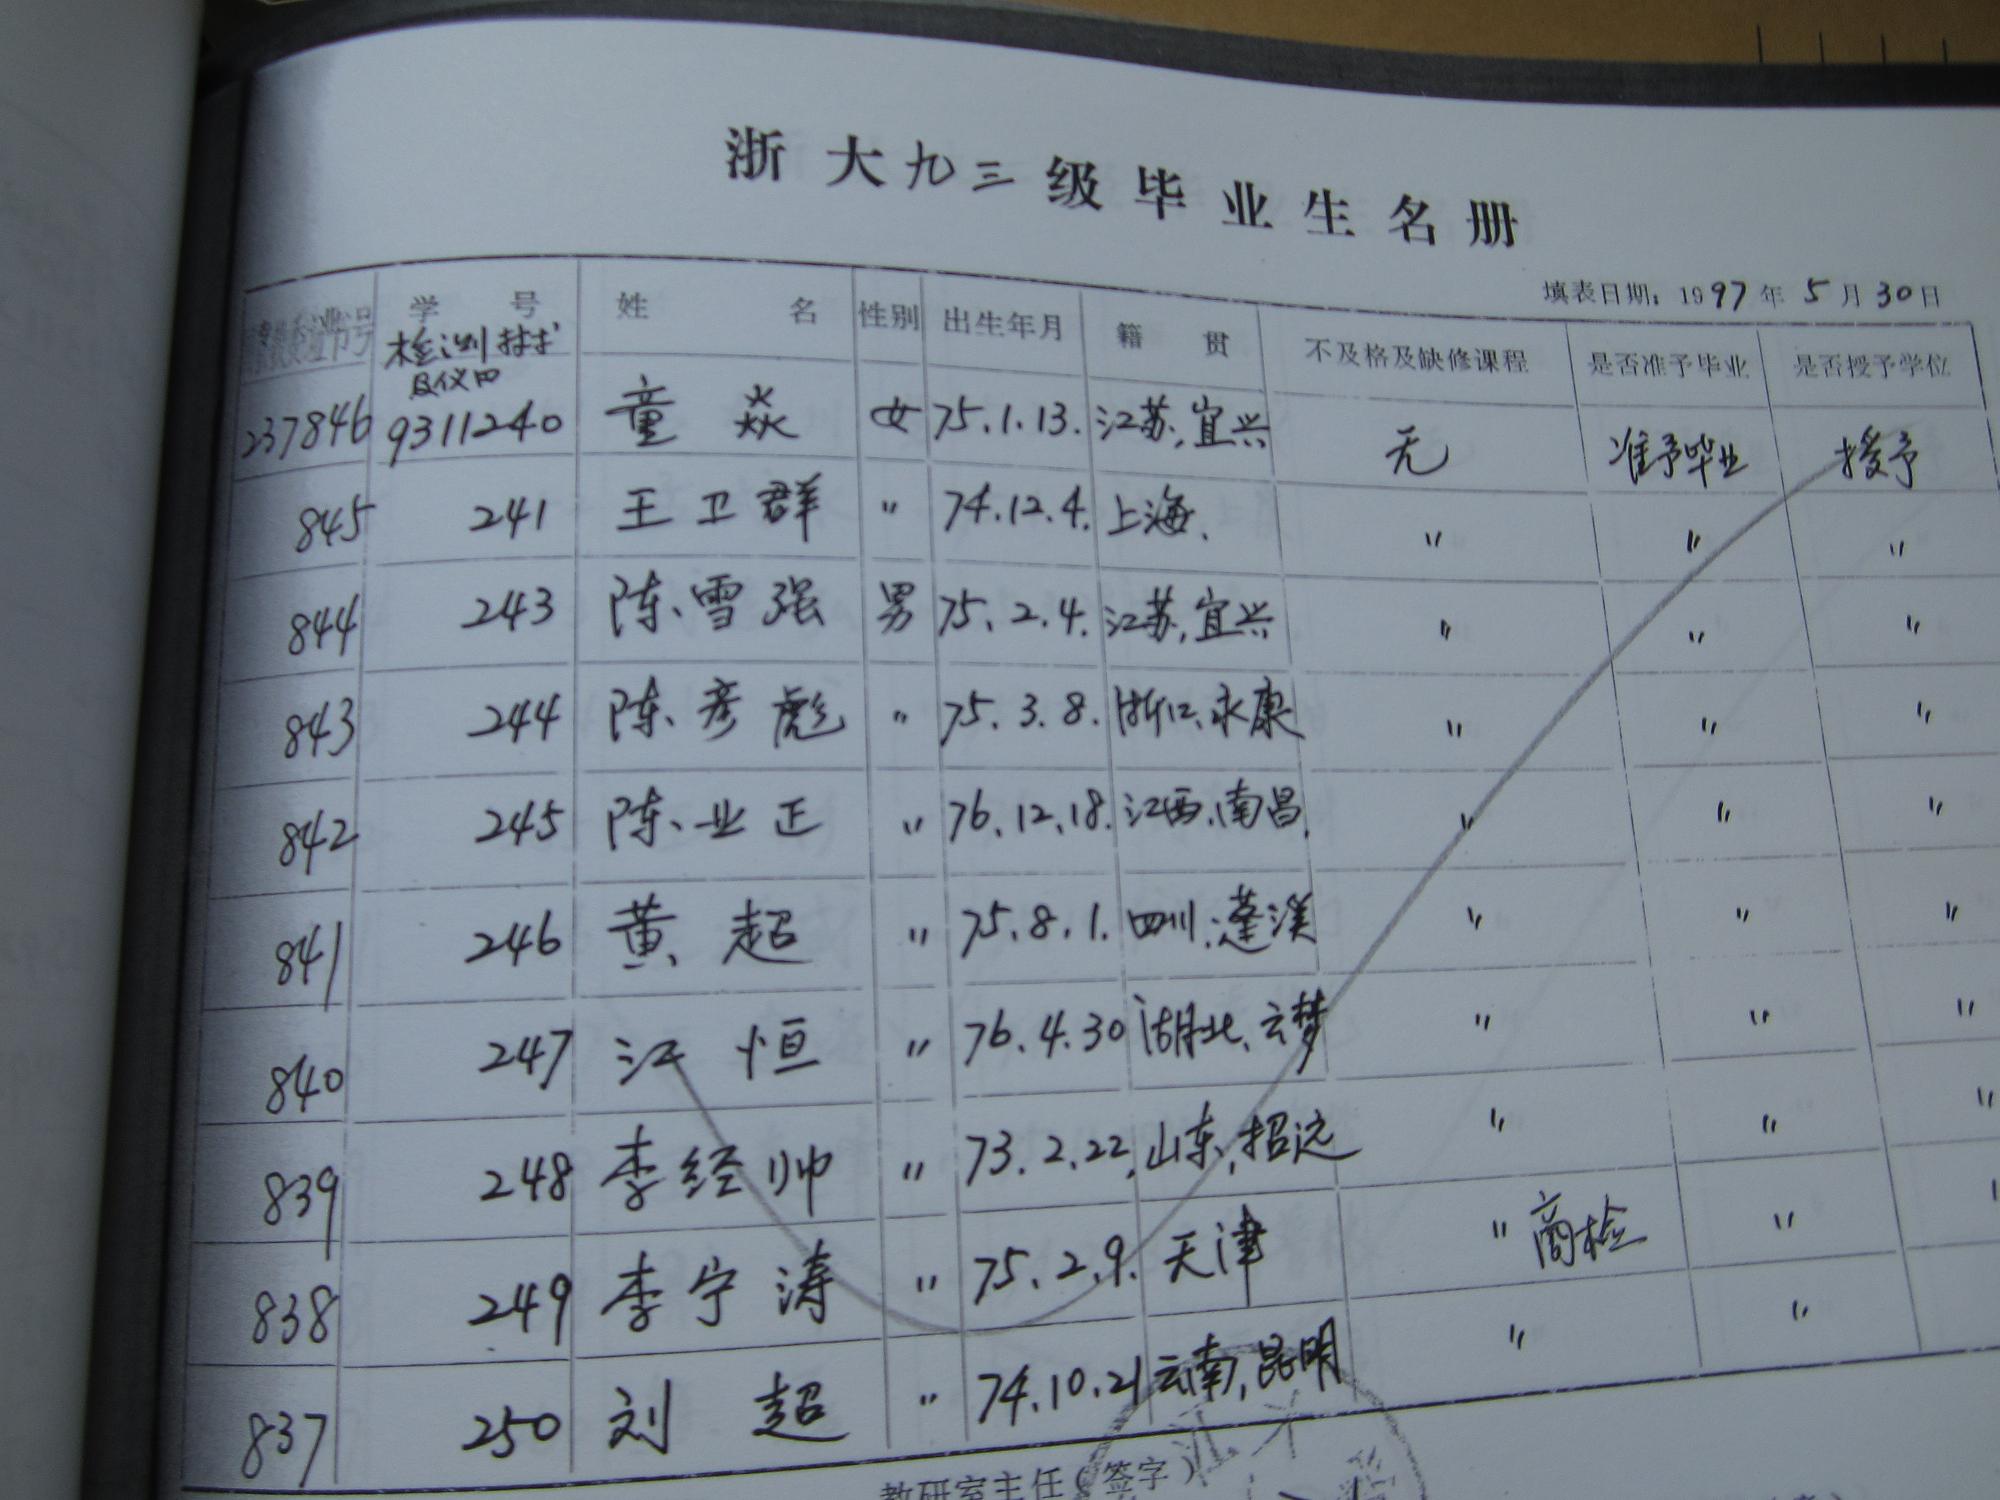 浙大九三级毕业生名册
填表日期：1997年5月30日
学号 姓名 性别 出生年月 籍贯 不及格及缺修课程 是否准予毕业 是否授予学位
检测技术
及仪四
237846 9311240 童焱 女 75.1.13. 江苏,宜兴 无 准予毕业 授予
845 241 王卫群 〃 74.12.4. 上海. 〃 〃 〃
844 243 陈雪强 男 75.2.4. 江苏,宜兴 〃 〃 〃
843 244 陈彦彪 〃 75.3.8. 浙江,永康 〃 〃 〃
842 245 陈业正 〃 76.12.18. 江西,南昌. 〃 〃 〃
841 246 黄超 〃 75.8.1. 四川,蓬溪 〃 〃 〃
840 247 江恒 〃 76.4.30 湖北,云梦 〃 〃 〃
839 248 李经帅 〃 73.2.22, 山东,招远 〃 〃 〃
838 249 李宁涛 〃 75.2.9. 天津 〃 商检 〃
837 250 刘超 〃 74.10.21 云南,昆明 〃 〃
教研室主任(签字)